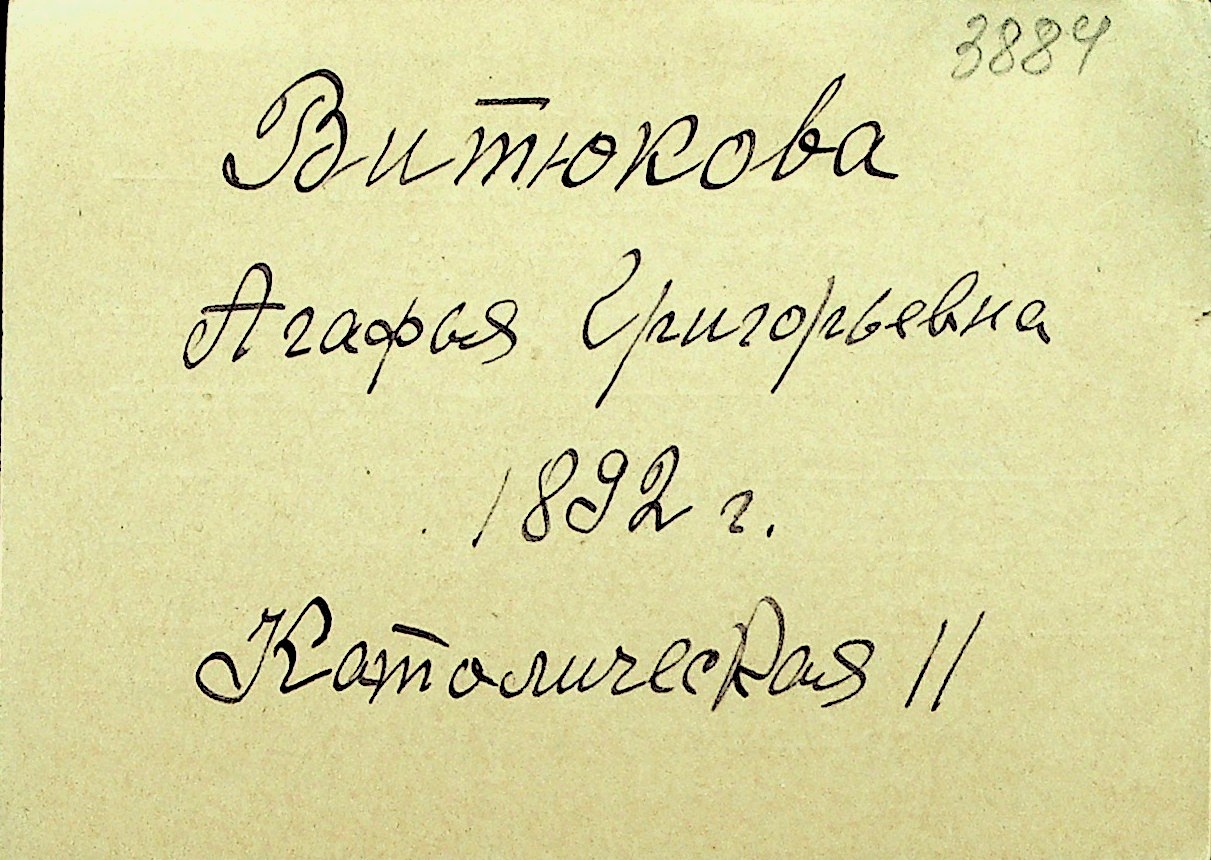 3884
Витюкова
Агафья Григорьевна
1892 г.
Католическая 11